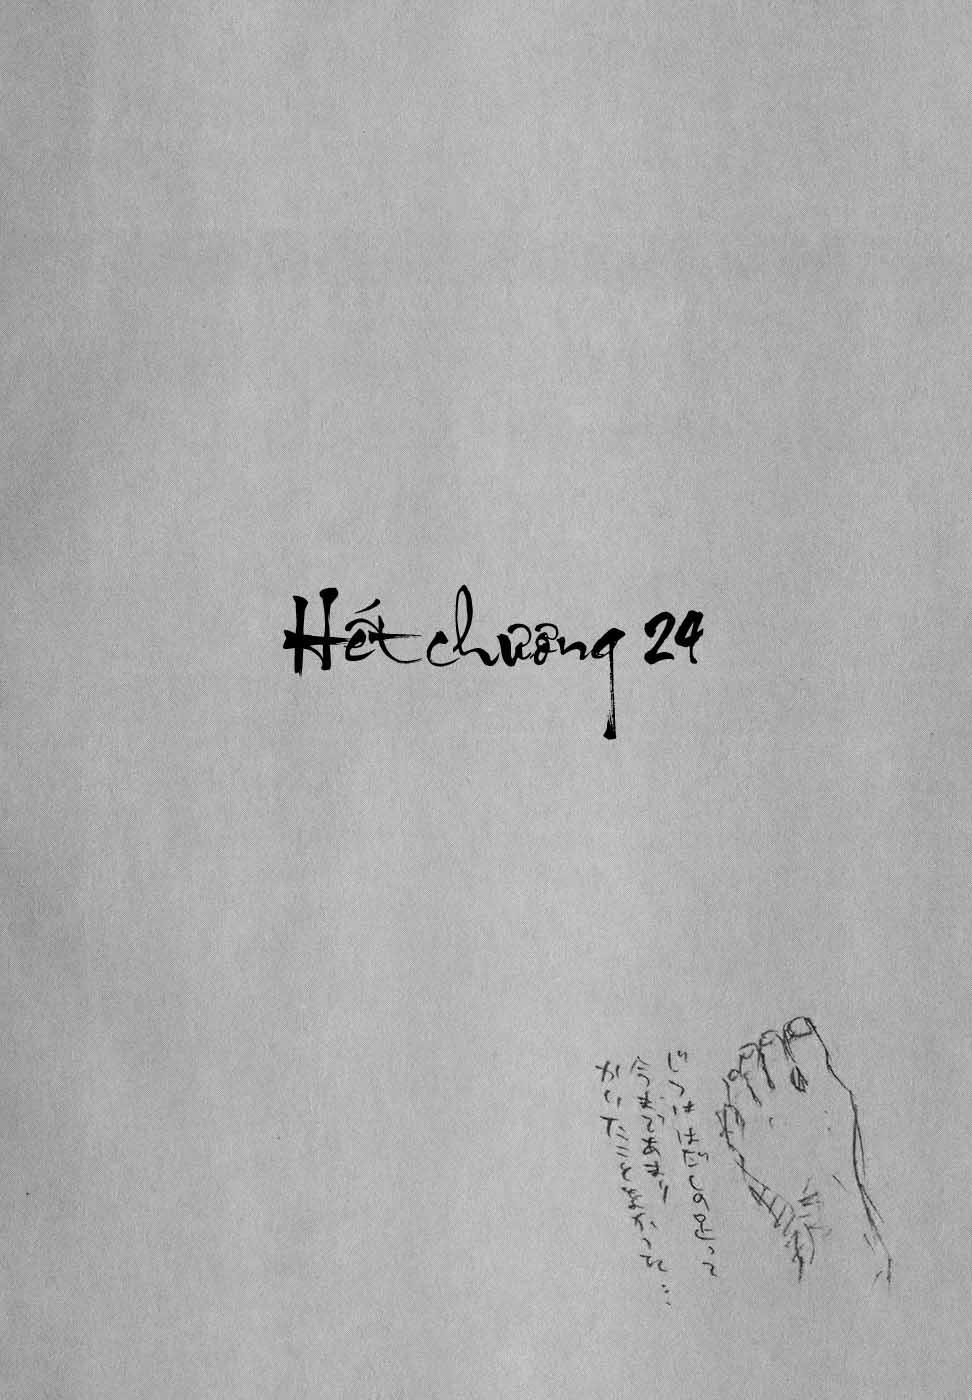 Hết chương 24
じつははだしの足って
今まであまり
かいたことなかった…